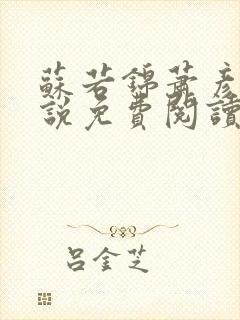 蘇若錦蕭彥
說免費閱讀
呂金芝